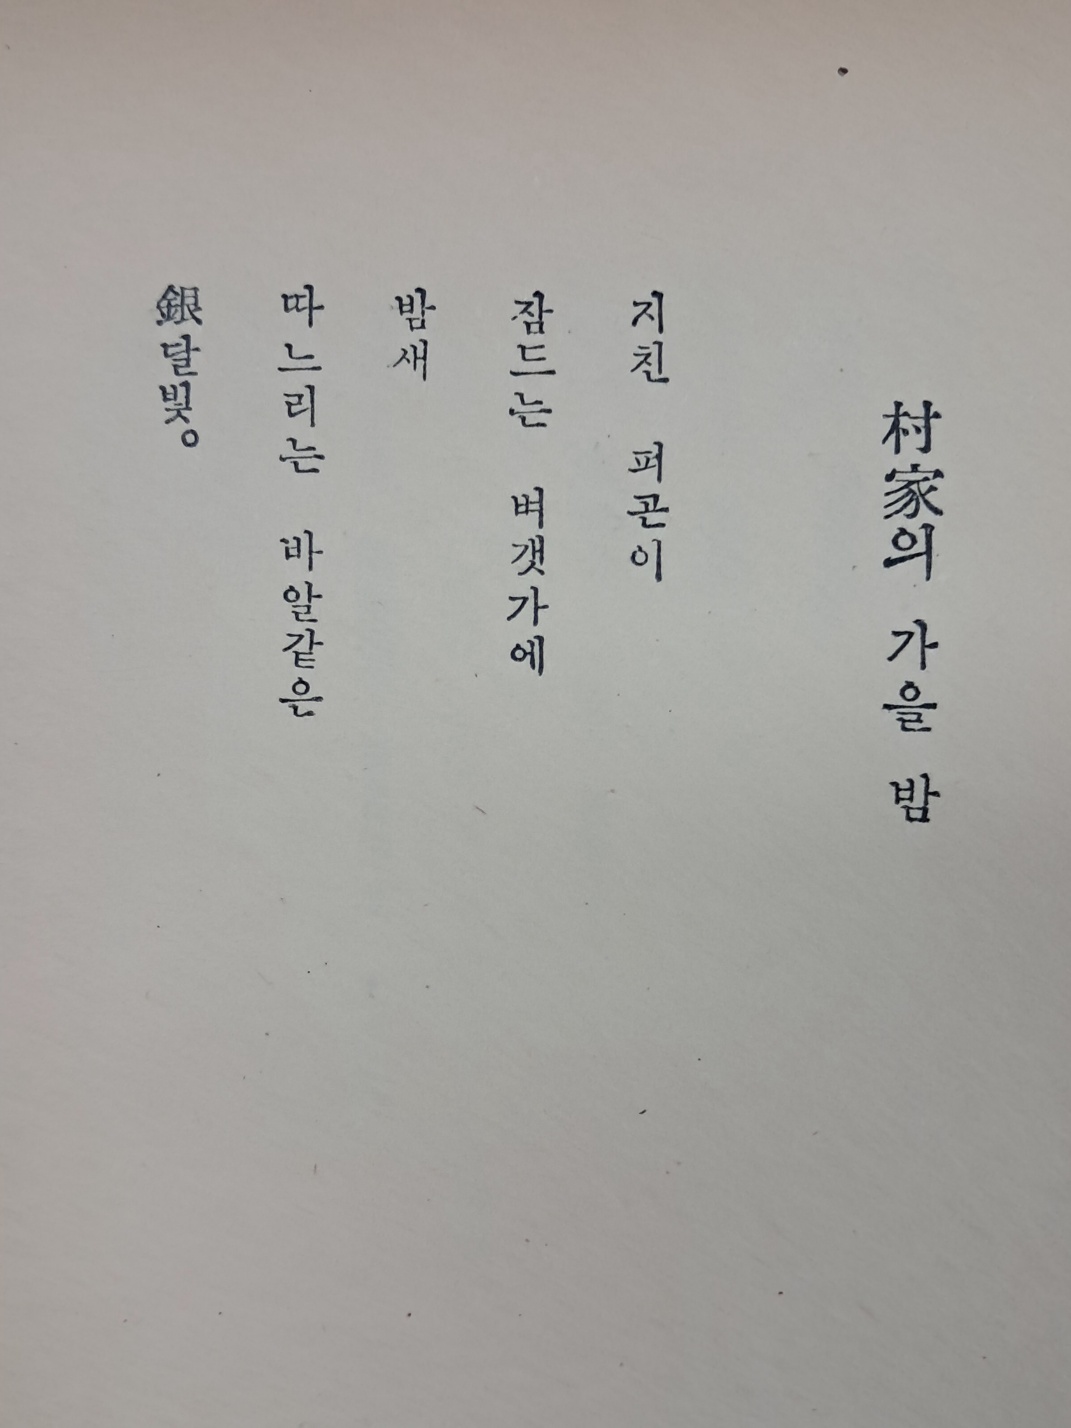 村家의 가을 밤
지친 퍼곤이
잠드는 벼갯가에
밤새
따느리는 바알같은
銀달빛。